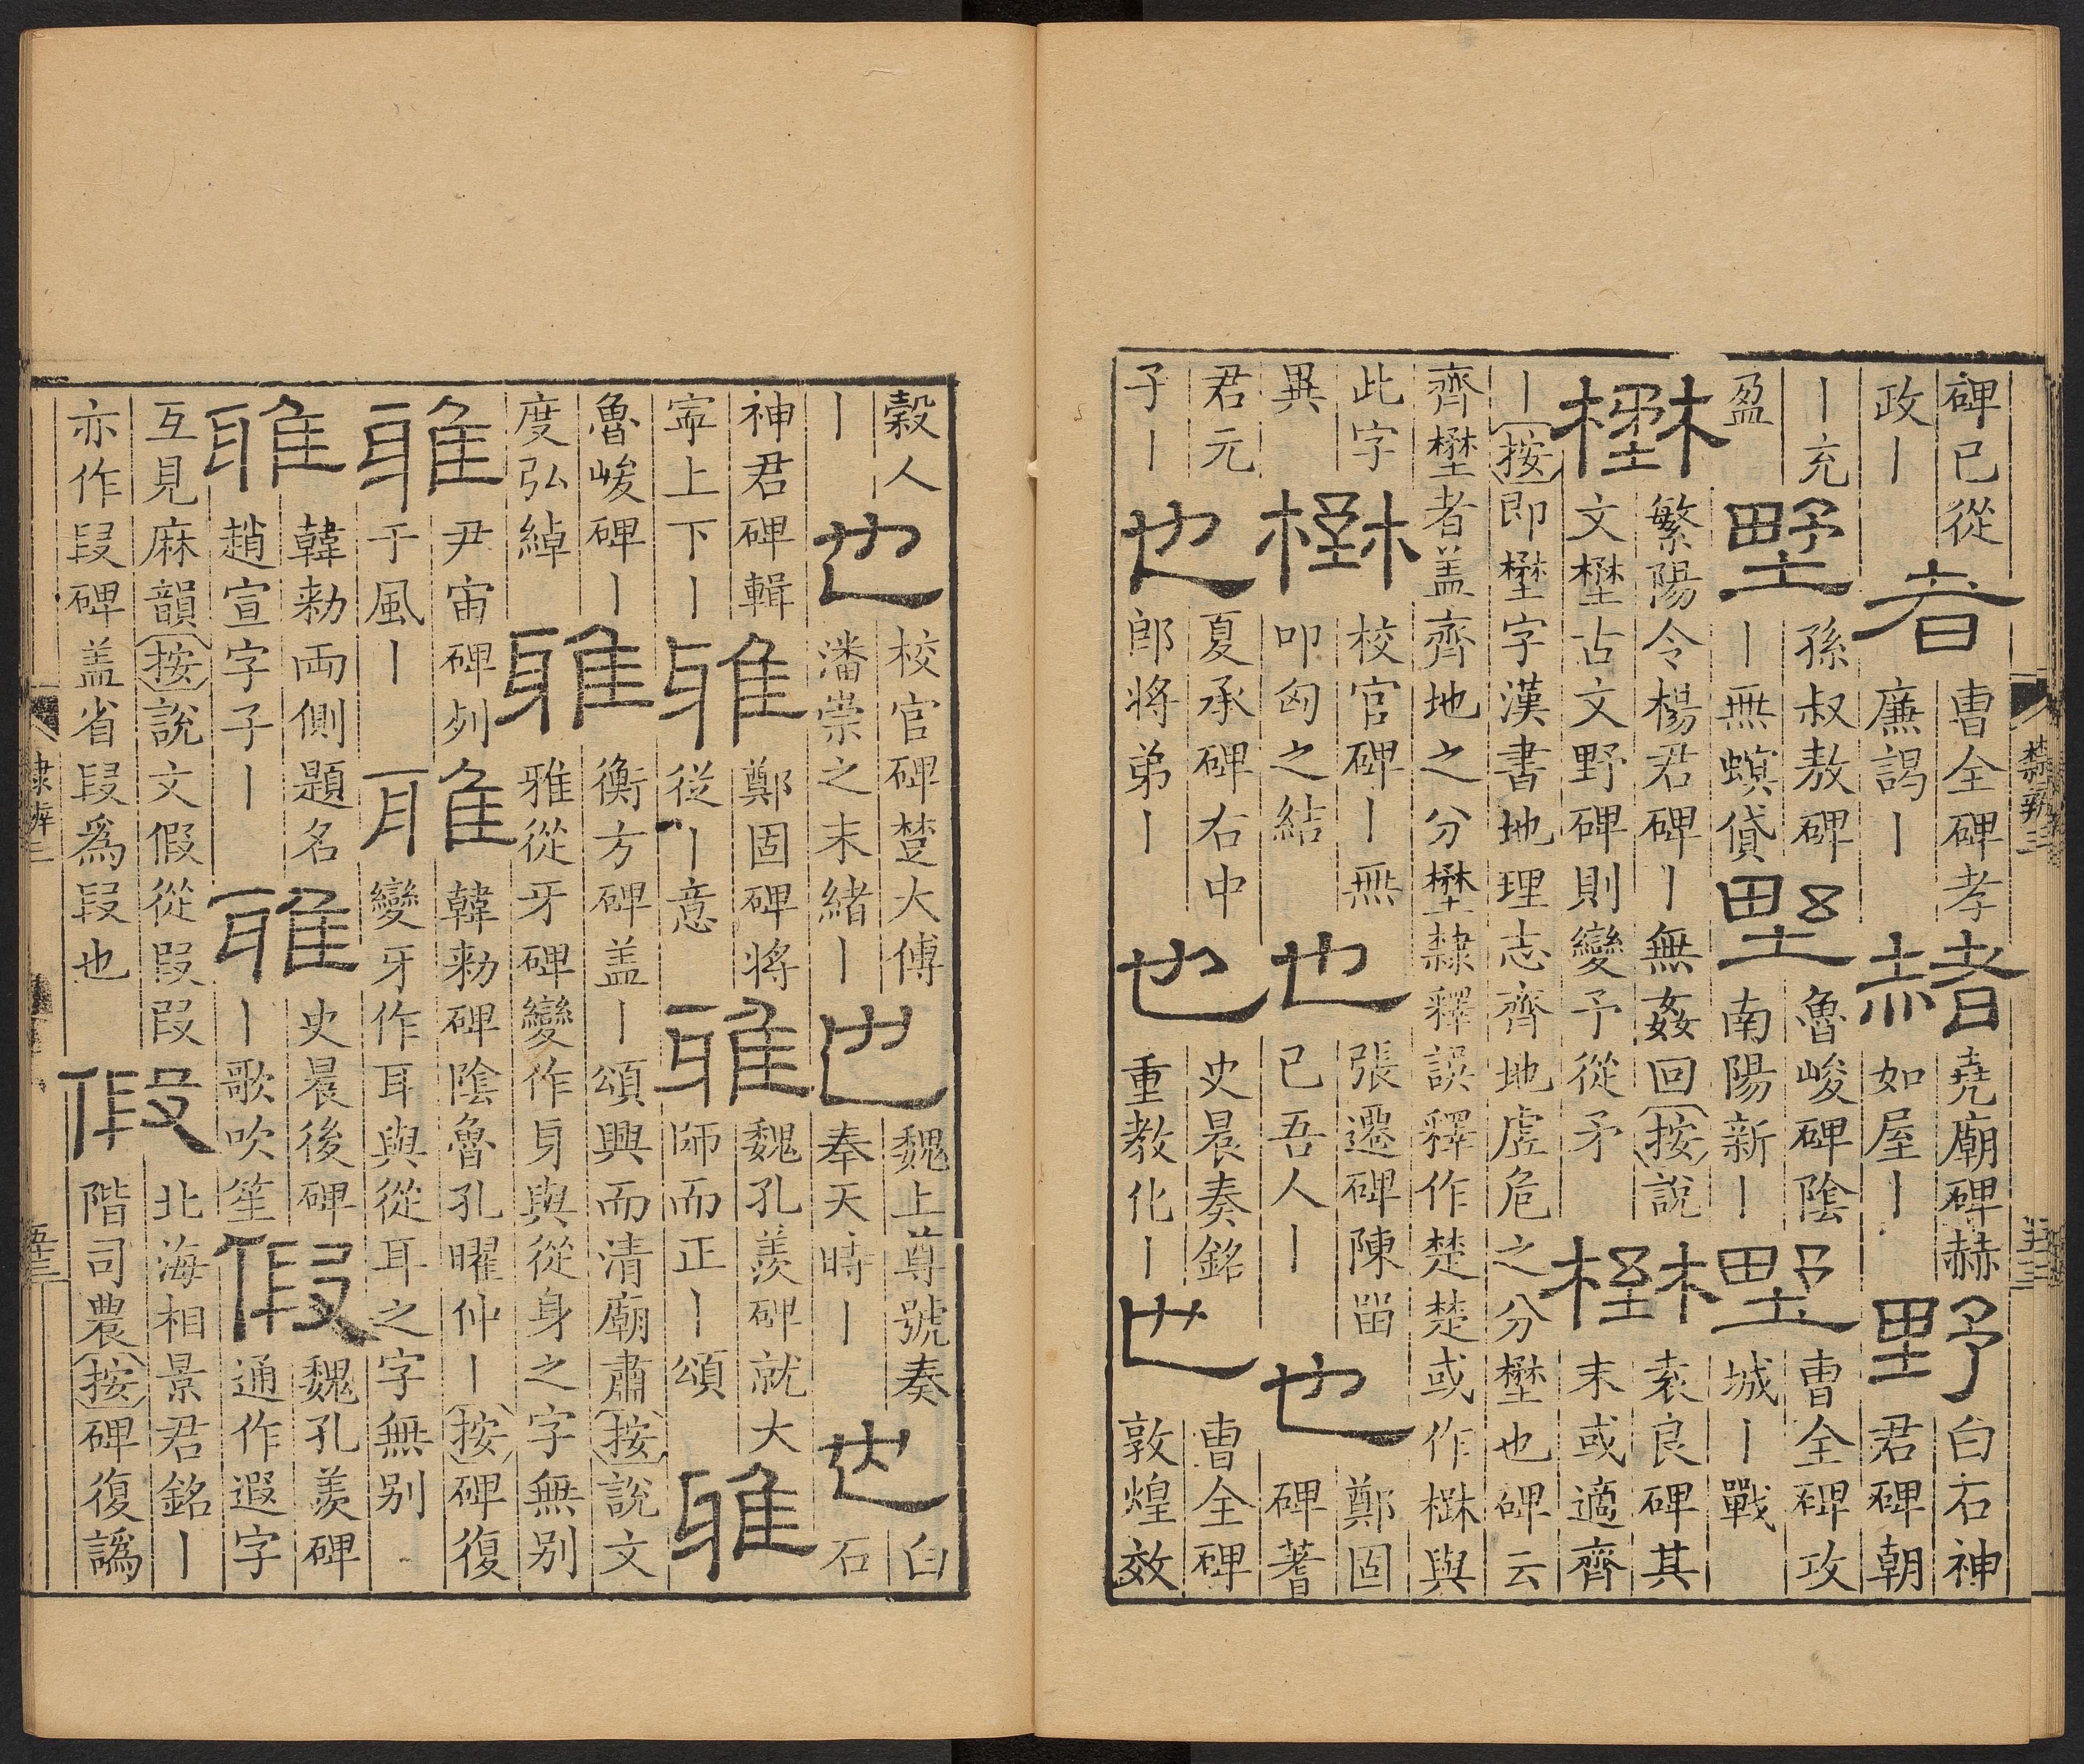 碑已從
政丨
者
曹全碑孝
廉謁丨
赭
堯廟碑赫
如屋丨
野
白石神
君碑朝
丨充
盈
壄
孫叔敖碑
丨無螟貸
野
魯峻碑陰
南陽新丨
野
曹全碑攻
城丨戰
壄
繁陽令楊君碑丨無姦回按說
文壄古文野碑則變予從矛
壄
袁良碑其
末或適齊
丨按即壄字漢書地理志齊地虛危之分壄也碑云
齊壄者盖齊地之分壄隸釋誤釋作楚楚或作檚與
此字
異
楚
校官碑丨無
叩匈之結
也
張遷碑陳留
已吾人丨
也
鄭固
碑蓍
君元
子丨
也
夏承碑右中
郎將弟丨
也
史晨奏銘
重教化丨
也
曹全碑
敦煌效
隸辨三
五十三
穀人
丨
也
校官碑楚大傅
潘崇之末緒丨
也
魏上尊號奏
奉天時丨
也
白
石
神君碑輯
寍上下丨
雅
鄭固碑將
從丨意
雅
魏孔羨碑就大
師而正丨頌
雅
魯峻碑丨
度弘綽
雅
衡方碑盖丨頌興而清廟肅按說文
雅從牙碑變作身與從身之字無別
雅
尹宙碑列
于風丨
雅
韓勑碑陰魯孔曜仲丨按碑復
變牙作耳與從耳之字無別
雅
韓勑兩側題名
趙宣字子丨
雅
史晨後碑
丨歌吹笙
假
魏孔羨碑
通作遐字
互見麻韻按說文假從叚叚
亦作段碑盖省叚爲段也
假
北海相景君銘丨
階司農按碑復譌
隸辨三